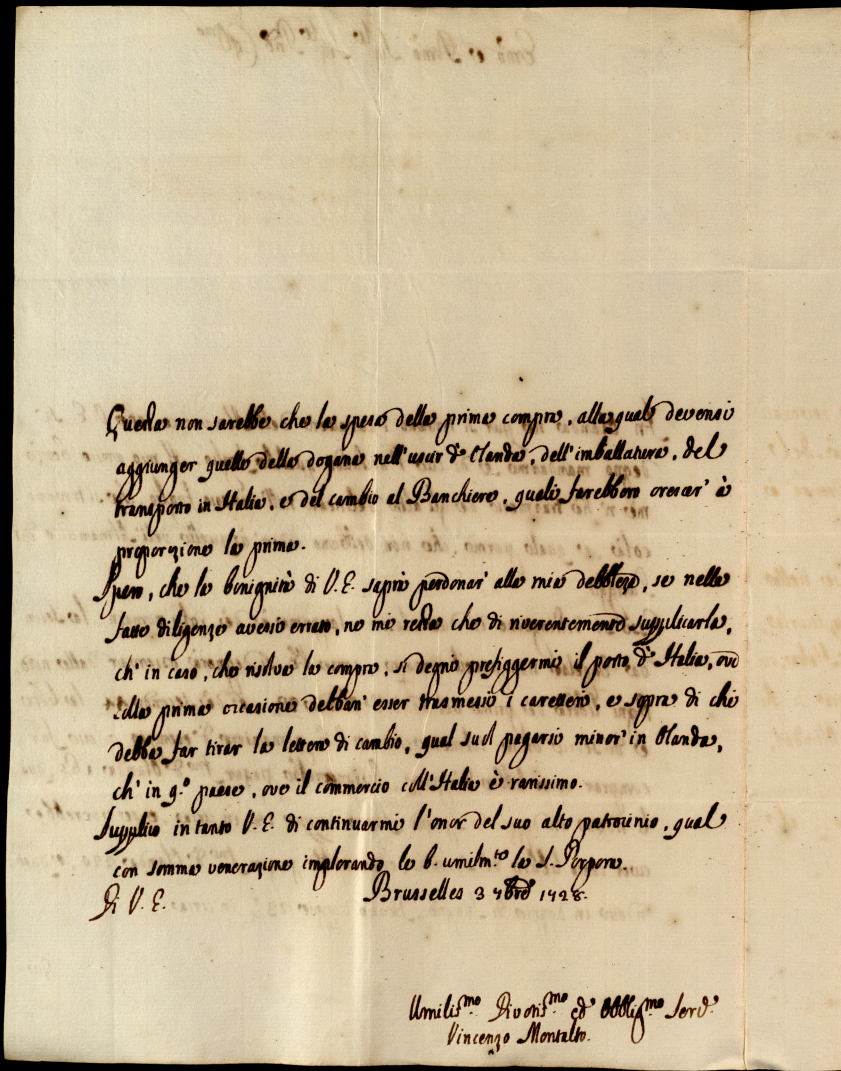 Questa non sarebbe che la spesa della prima compra, alla quale devensi
aggiunger quelle della dogana nell'uscir d'Olanda, dell'imballatura, del
transporto in Italia, e del cambio al Banchiere, quali farebbero crescer' à
proporzione la prima.
Spero, che la benignità di V. E. saprà perdonar' alla mia debolezza, se nelle
fatte diligenze avessi errato, ne mi resta che di riverentemente supplicarla,
ch' in caso, che risolva la compra, si degni prefiggermi il porto d'Italia, ove
colla prima occasione debban' esser trasmessi i caratteri, e sopra di chi
debba far tirar la lettera di cambio, qual suol pagarsi minor' in Olanda,
ch' in q.o paese, ove il commercio coll'Italia è rarissimo.
Supplico in tanto V. E. di continuarmi l'onor del suo alto patrocinio, qual
con somma venerazione implorando, le b. umilm.te la S. Porpora.
Di V. E. Brusselles 3 7bre 1728.
Umiliss.mo Divotis.mo ed Obblig.mo Serv.e
Vincenzo Montalto.